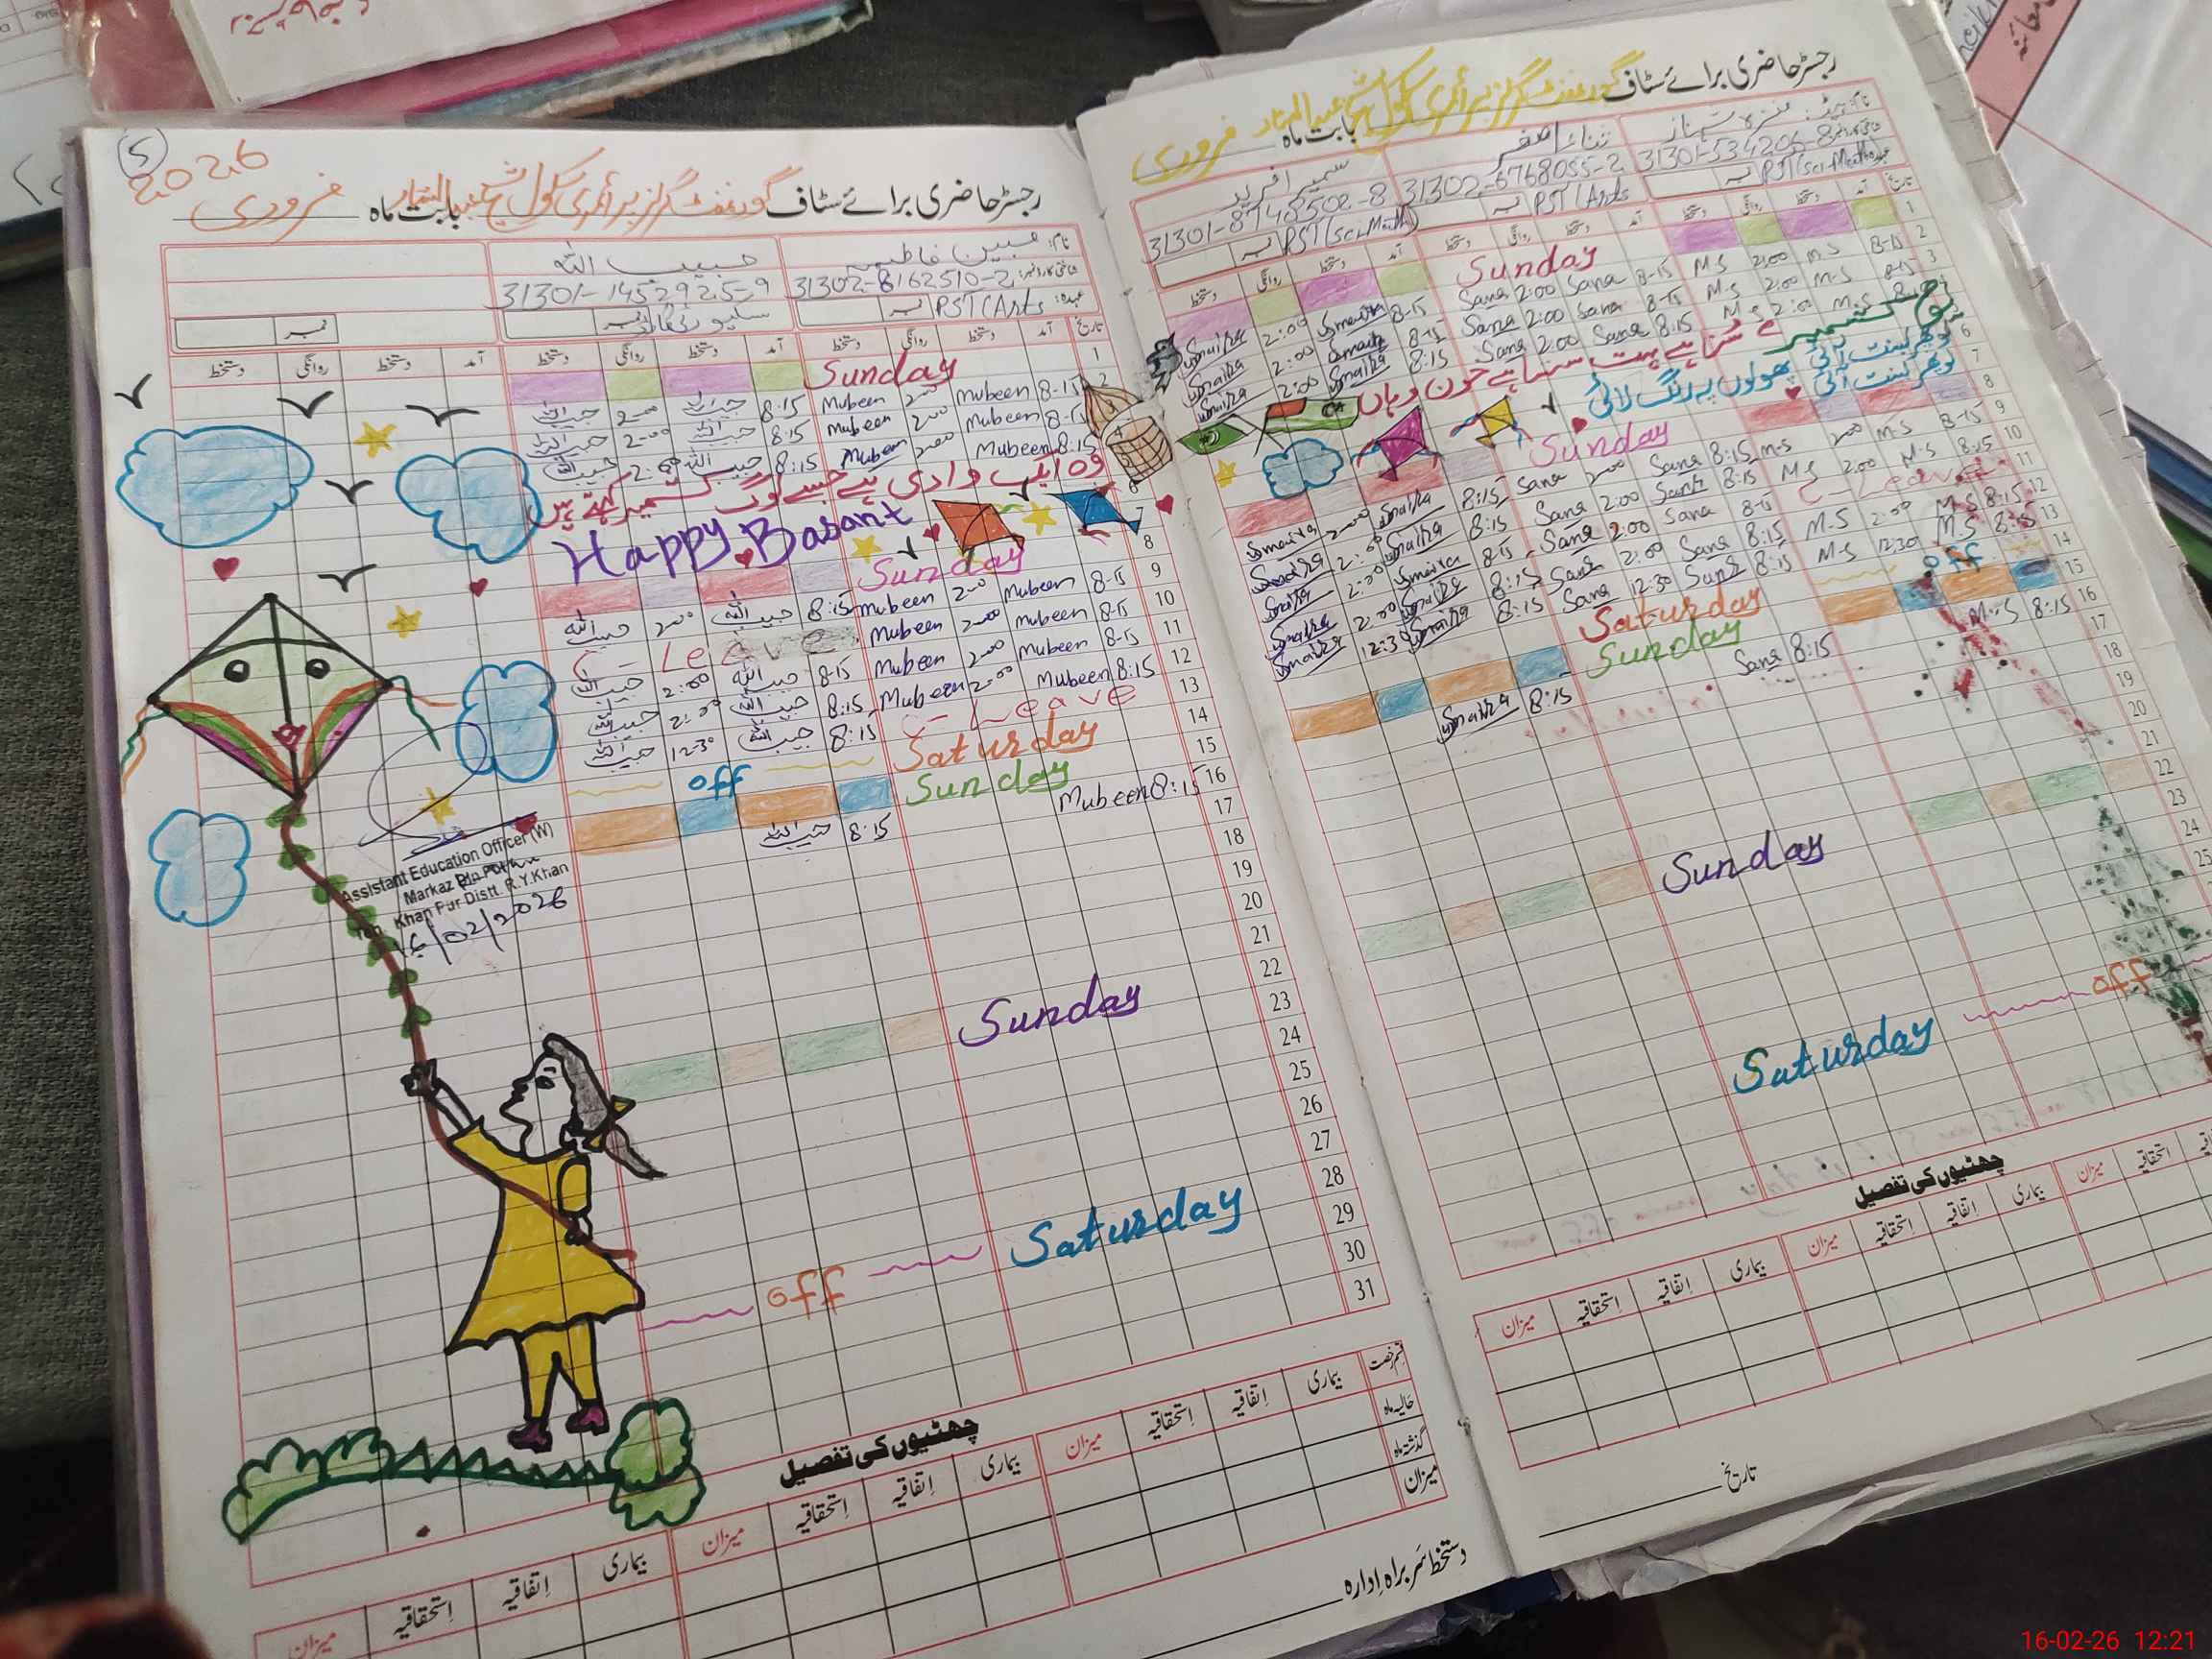 رجسٹر حاضری برائے سٹاف گورنمنٹ گرلز پرائمری سکول شیخ عبدالستار بابت ماہ فروری
5
2026
نام: مبین فاطمہ
حبیب اللہ
شناختی کارڈ نمبر: 31302-8162510-2
31301-1452925-9
عہدہ: PST (Arts
نمبر
سکیورٹی گارڈ
نمبر
نمبر
تاریخ آمد دستخط روانگی دستخط آمد دستخط روانگی دستخط آمد دستخط روانگی دستخط
1 Sunday
2 8-15 Mubeen 2:00 Mubeen 8:15 حبیب اللہ 2:00 حبیب اللہ
8-15 Mubeen 2:00 Mubeen 8:15 حبیب اللہ 2:00 حبیب اللہ
8:15 Mubeen 2:00 Mubeen 8:15 حبیب اللہ 2:00 حبیب اللہ
وہ ایک وادی ہے جسے لوگ کشمیر کہتے ہیں
6
7 Happy Basant
8 Sunday
9 8-15 Mubeen 2:00 Mubeen 8:15 حبیب اللہ 2:00 حبیب اللہ
10 8-15 Mubeen 2:00 Mubeen C-Leave
11 8-15 Mubeen 2:00 Mubeen 8-15 حبیب اللہ 2:00 حبیب اللہ
12 8:15 Mubeen 2:00 Mubeen 8:15 حبیب اللہ 2:00 حبیب اللہ
13 C-Leave 8:15 حبیب اللہ 12:30 حبیب اللہ
14 Saturday off
15 Sunday
16 8:15 Mubeen 8:15 حبیب اللہ
17
18
19
20
21
22 Sunday
23
24
25
26
27
28 Saturday off
29
30
31
Assistant Education Officer (W)
Markaz
Khan Pur Distt. R.Y.Khan
16/02/2026
چھٹیوں کی تفصیل
قسم رخصت بیماری اتفاقیہ استحقاقیہ میزان بیماری اتفاقیہ استحقاقیہ میزان بیماری اتفاقیہ استحقاقیہ میزان
حالیہ ماہ
گذشتہ ماہ
میزان
دستخط سربراہ ادارہ
رجسٹر حاضری برائے سٹاف گورنمنٹ گرلز پرائمری سکول شیخ عبدالستار بابت ماہ فروری
ثناء اصغر
31301-534206-8
31302-6768055-2
31301-8748502-8
عہدہ PST (Sci-Math)
PST (Arts
PST (Sci-Math)
تاریخ آمد دستخط روانگی دستخط آمد دستخط روانگی دستخط آمد دستخط روانگی دستخط
1 Sunday
2 8-15 M-S 2:00 M-S 8-15 Sana 2:00 Sana 8-15 Smaira 2:00 Smaira
3 8-15 M-S 2:00 M-S 8-15 Sana 2:00 Sana 8-15 Smaira 2:00 Smaira
M-S 2:00 M-S 8:15 Sana 2:00 Sana 8:15 Smaira 2:00 Smaira
6
7
8 Sunday
9 8-15 M-S 2:00 M-S 8:15 Sana 2:00 Sana 8:15 Smaira 2:00 Smaira
10 8:15 M-S 2:00 M-S 8:15 Sana 2:00 Sana 8:15 Smaira 2:00 Smaira
11 C-Leave 8-15 Sana 2:00 Sana 8:15 Smaira 2:00 Smaira
12 8:15 M-S 2:00 M-S 8:15 Sana 2:00 Sana 8:15 Smaira 2:00 Smaira
13 8:15 M-S 12:30 M-S 8:15 Sana 12:30 Sana 8:15 Smaira 12:30 Smaira
14 off Saturday
15 Sunday
16 8:15 M-S 8:15 Sana 8:15 Smaira
17
18
19
20
21
22 Sunday
23
24
25
off Saturday
چھٹیوں کی تفصیل
استحقاقیہ میزان بیماری اتفاقیہ استحقاقیہ میزان بیماری اتفاقیہ استحقاقیہ میزان
تاریخ
16-02-26 12:21